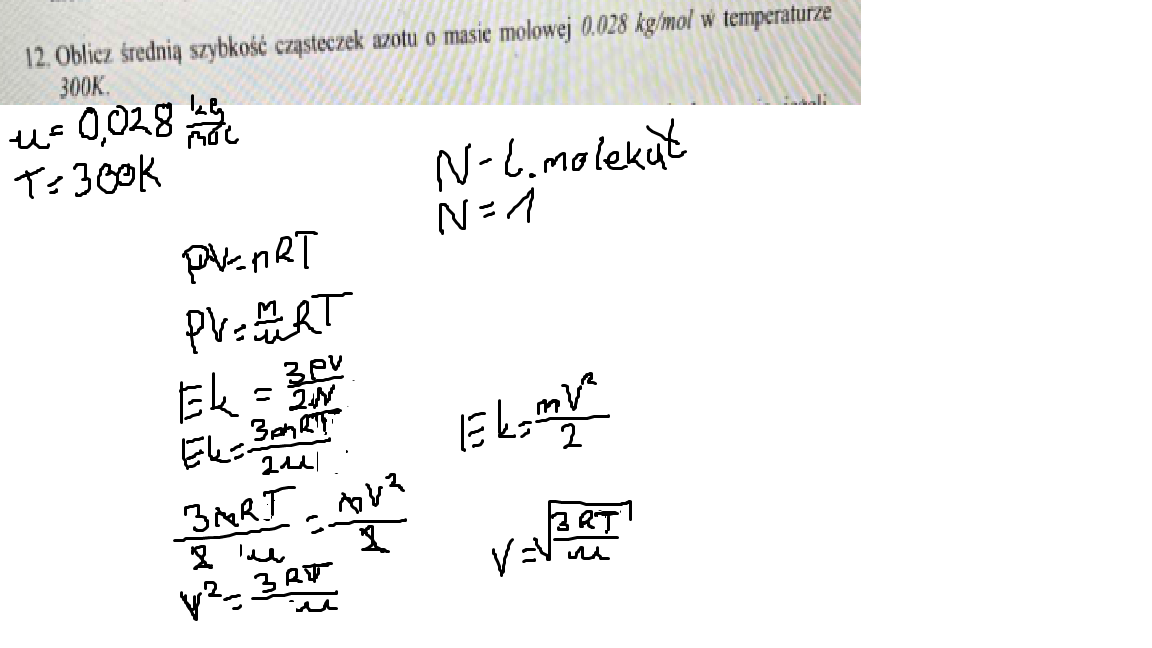 12. Oblicz średnią szybkość cząsteczek azotu o masie molowej 0.028 kg/mol w temperaturze
300K.
u = 0,028 kg/mol
T = 300K
N - l. molekuł
N = 1
pV = nRT
pV = m/u RT
Ek = 3pV/2N
Ek = 3mRT/2u
Ek = mV²/2
3mRT/2u = mV²/2
V² = 3RT/u
V = √(3RT/u)